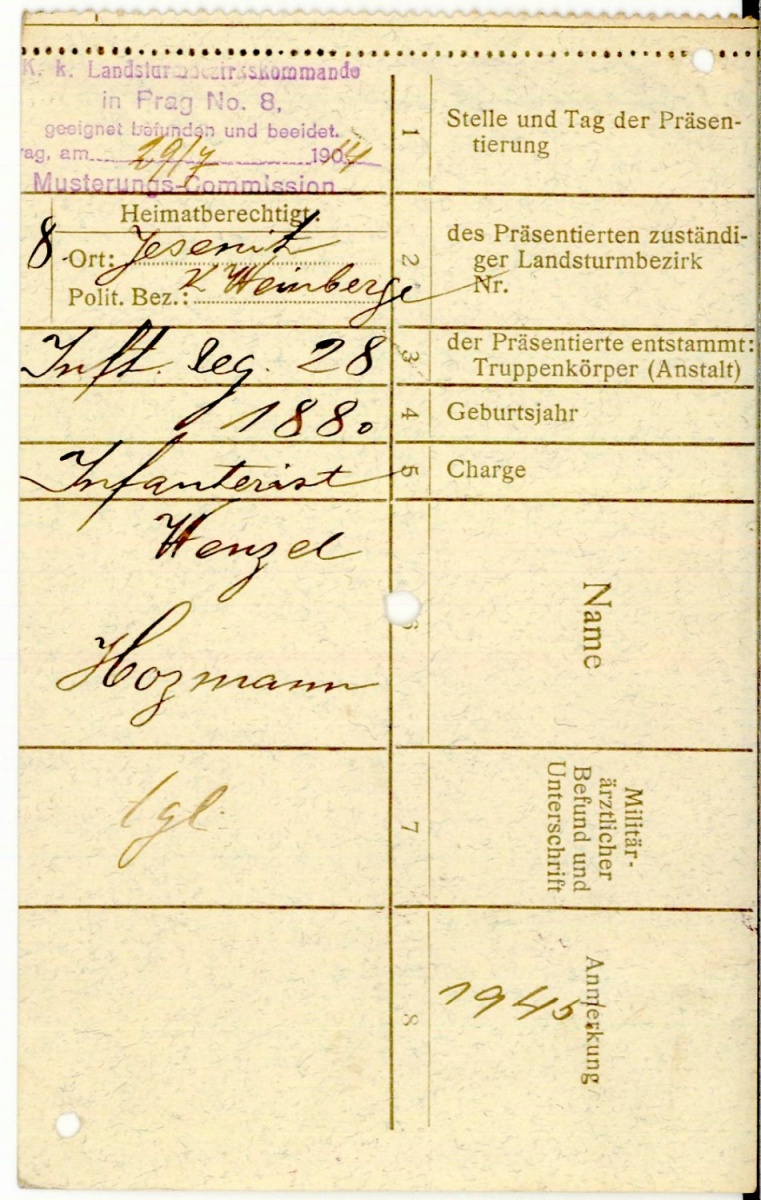 K. k. Landsturmbezirkskommando
in Prag No. 8,
geeignet befunden und beeidet.
rag, am 29/7 1904
Musterungs-Commission
1
Stelle und Tag der Präsen-
tierung
Heimatberechtigt:
8 Ort: Jesenitz
Polit. Bez.: K Weinberge
2
des Präsentierten zuständi-
ger Landsturmbezirk
Nr.
Inft. Reg. 28
3
der Präsentierte entstammt:
Truppenkörper (Anstalt)
1880
4
Geburtsjahr
Infanterist
5
Charge
Wenzel
Hozmann
6
Name
tgl.
7
Militär-
ärztlicher
Befund und
Unterschrift
8
Anmerkung
1945